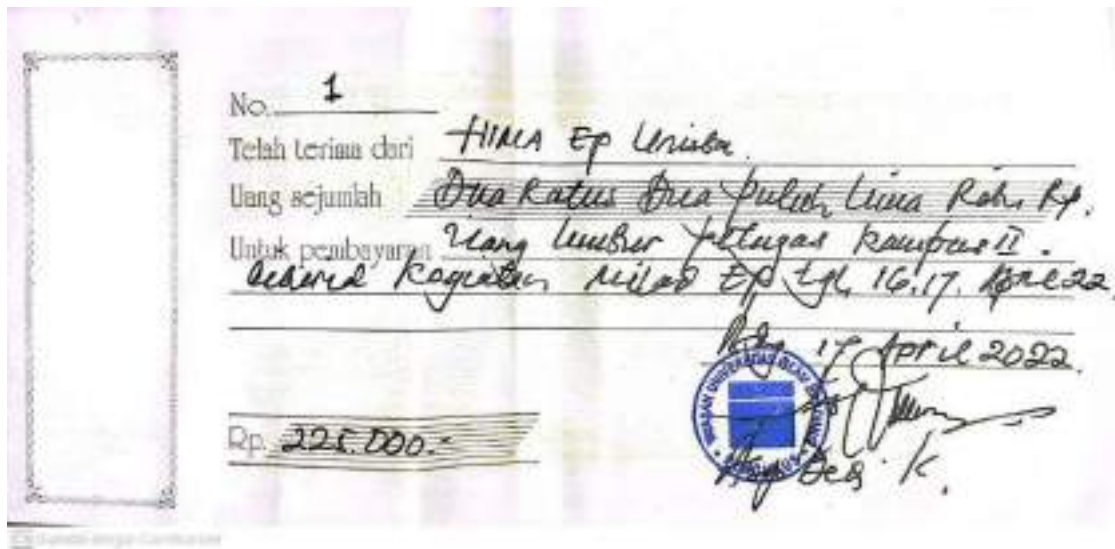 No. 1
Telah terima dari HIMA EP Unisba
Uang sejumlah Dua Ratus Dua puluh Lima Ribu Rp.
Untuk pembayaran Uang lembur petugas kampus II.
Kegiatan Milad EP tgl, 16.17. April 22.
Bdg 17 April 2022.
Rp. 225.000.-
K.